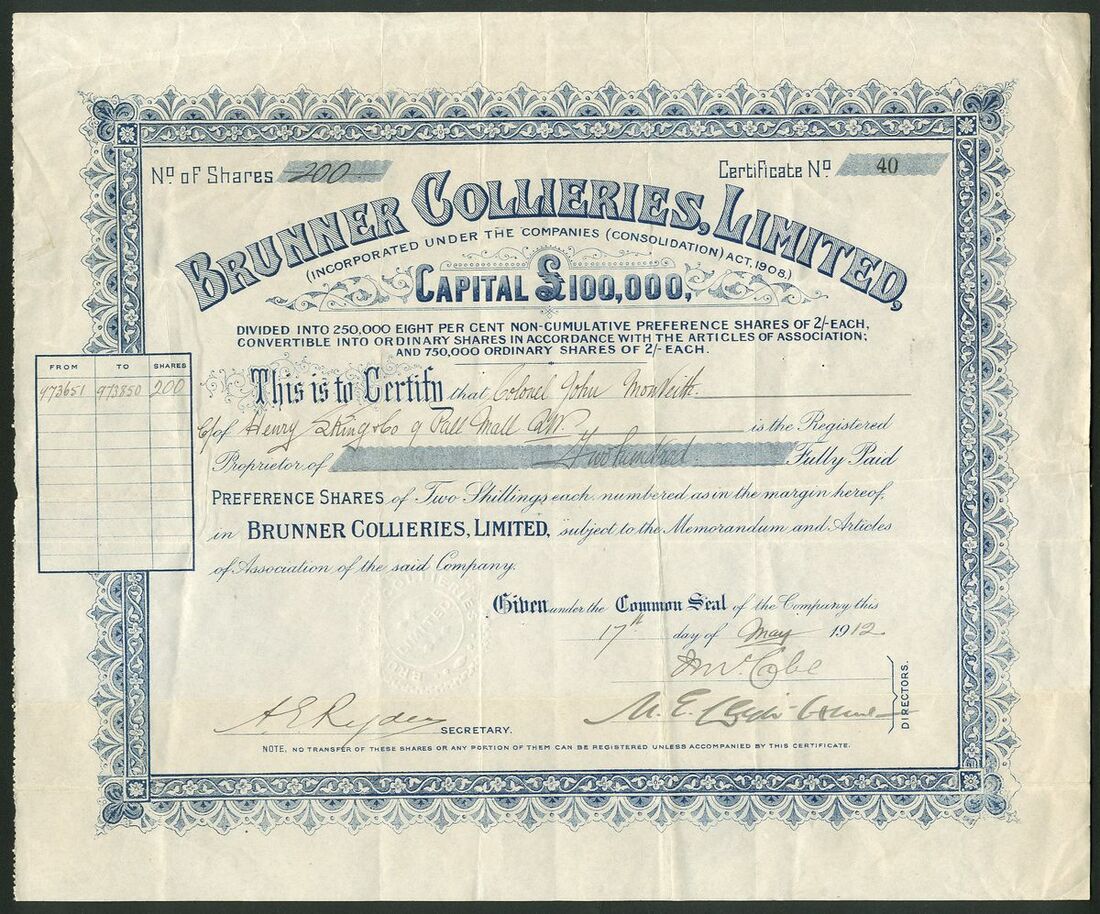 No of Shares 200
Certificate No 40
BRUNNER COLLIERIES, LIMITED,
(INCORPORATED UNDER THE COMPANIES (CONSOLIDATION) ACT, 1908.)
CAPITAL £100,000,
DIVIDED INTO 250,000 EIGHT PER CENT NON-CUMULATIVE PREFERENCE SHARES OF 2/-EACH,
CONVERTIBLE INTO ORDINARY SHARES IN ACCORDANCE WITH THE ARTICLES OF ASSOCIATION;
AND 750,000 ORDINARY SHARES OF 2/-EACH.
FROM TO SHARES
973651 973850 200
This is to Certify that Colonel John Monteith.
C/o of Henry S King & Co 9 Pall Mall S.W. is the Registered
Proprietor of Two hundred Fully Paid
PREFERENCE SHARES of Two Shillings each numbered as in the margin hereof,
in BRUNNER COLLIERIES, LIMITED, subject to the Memorandum and Articles
of Association of the said Company.
Given under the Common Seal of the Company this
17th day of May 1912
DIRECTORS.
A E Ryder SECRETARY.
NOTE, NO TRANSFER OF THESE SHARES OR ANY PORTION OF THEM CAN BE REGISTERED UNLESS ACCOMPANIED BY THIS CERTIFICATE.